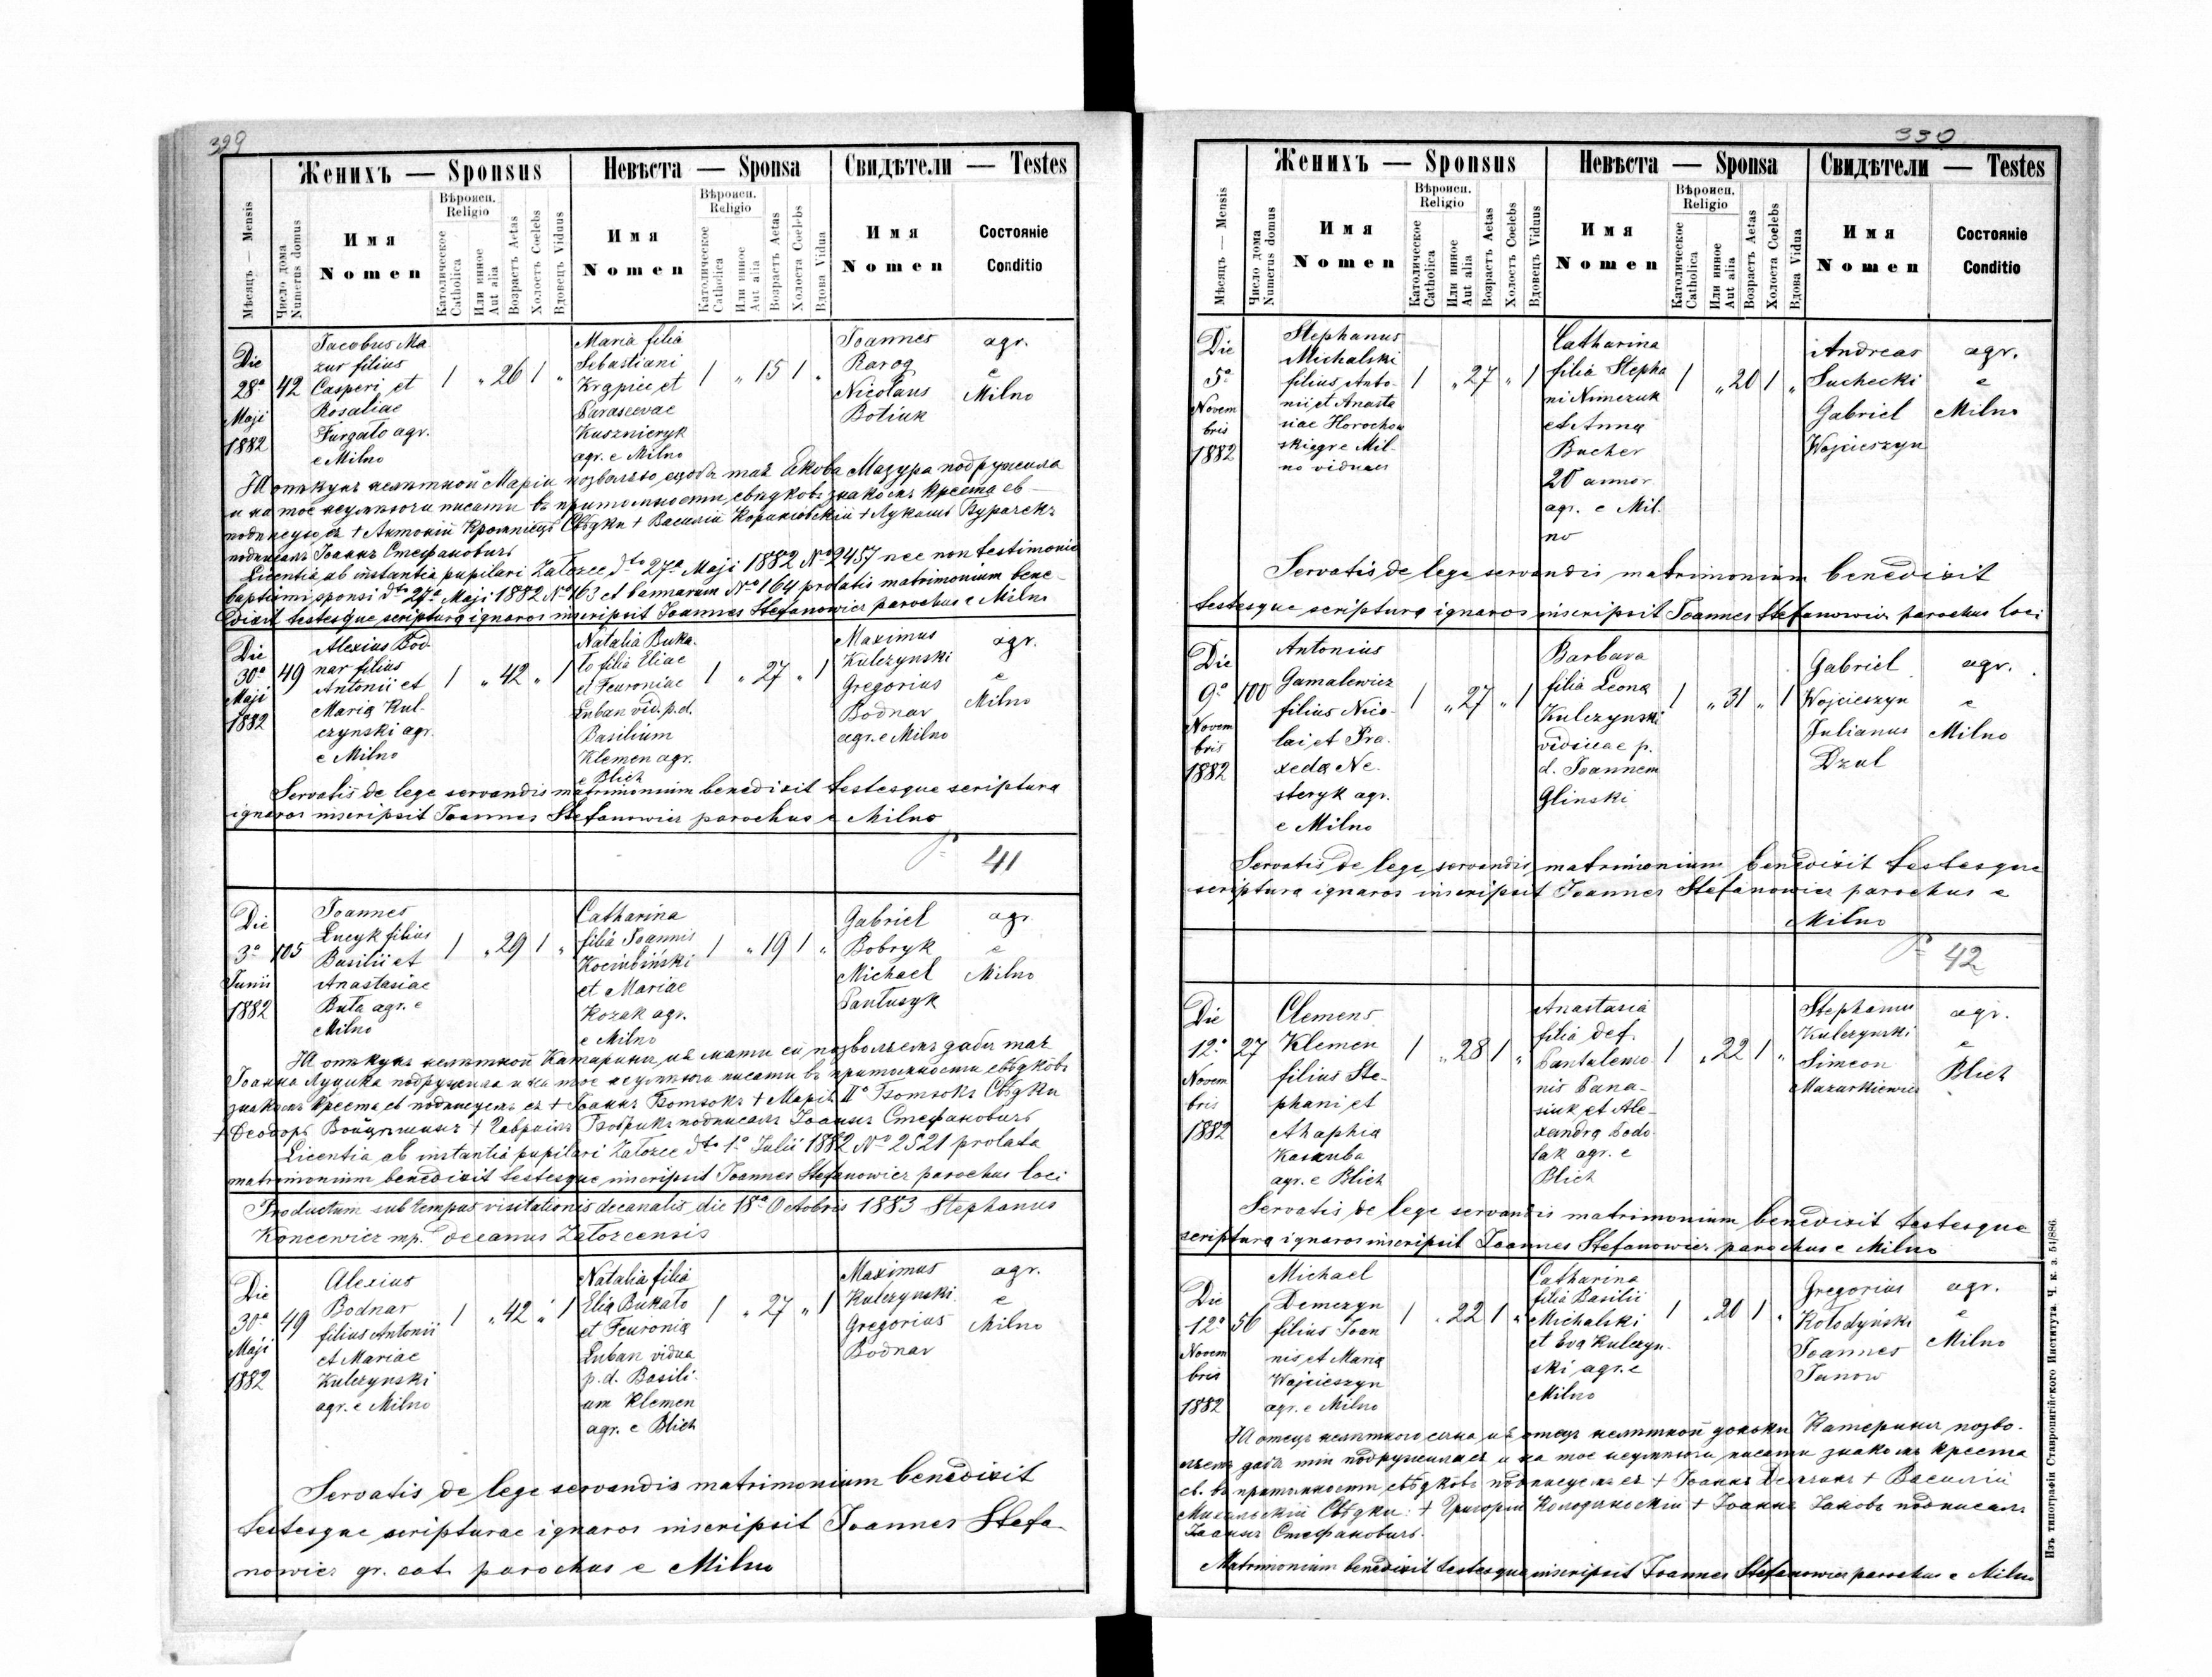 329
Женихъ — Sponsus Невѣста — Sponsa Свидѣтели — Testes
Мѣсяцъ — Mensis
Число дома Numerus domus
Имя Nomen
Вѣроисп. Religio
Католическое Catholica
Или инное Aut alia
Возрастъ Aetas
Холостъ Coelebs
Вдовецъ Viduus
Имя Nomen
Вѣроисп. Religio
Католическое Catholica
Или инное Aut alia
Возрастъ Aetas
Холоста Coelebs
Вдова Vidua
Имя Nomen
Состояніе Conditio
Die
28ª
Maji
1882
42
Jacobus Ma
zur filius
Casperi et
Rosaliae
Furgato agr.
e Milno
1 „ 26 1 „
Maria filia
Sebastiani
Krąpiec et
Parascevae
Kusznieryk
agr. e Milno
1 „ 15 1 „
Joannes
Rarog
Nicolaus
Botiuk
agr.
e
Milno
Я опѣкунъ нелѣтной Маріи позволяю щобы тая Якова Мазура подружила
и на тое неумѣючи писати въ притомности свѣдковъ знакомъ креста св
подписуюся + Антоній Свѣдки + Василій + Лукашъ
подписалъ Іоаннъ Стефановичъ
Licentia ab instantia pupilari Załozce dto 27ª Maji 1882 No 2457 nec non testimonio
baptismi sponsi dto 27ª Maji 1882 No 163 et bannorum No 164 prolatis matrimonium bene-
dixit testesque scriptura ignaros inscripsit Joannes Stefanowicz parochus e Milno
Die
30ª
Maji
1882
49
Alexius Bod
nar filius
Antonii et
Maria Kul-
czynski agr.
e Milno
1 „ 42 „ 1
Natalia Buka
to filia Eliae
et Feuroniae
Łuban vid. p. d.
Basilium
Klemen agr.
e Blich
1 „ 27 „ 1
Maximus
Kulczynski
Gregorius
Bodnar
agr. e Milno
agr.
e
Milno
Servatis de lege servandis matrimonium benedixit testesque scriptura
ignaros inscripsit Joannes Stefanowicz parochus e Milno
41
Die
3ª
Junii
1882
105
Joannes
Łucyk filius
Basilii et
Anastasiae
Buta agr. e
Milno
1 „ 29 1 „
Catharina
filia Joannis
Kociubiński
et Mariae
Kozak agr.
e Milno
1 „ 19 1 „
Gabriel
Bobryk
Michael
Pantusyk
agr
e
Milno
Я опѣкунъ нелѣтной Катарины, и я мати ей позволяемъ дабы тая
Іоанна Луцика подружила и на тое неумѣючи писати въ притомности свѣдковъ
знакомъ креста св подписуемъ ся + Іоаннъ + Марія Свѣдки
+ Ѳеодоръ Войцѣшинъ + Гавріилъ Бобрикъ подписалъ Іоаннъ Стефановичъ
Licentia ab instantia pupilari Załozce dto 1ª Julii 1882 No 2521 prolata
matrimonium benedixit testesque inscripsit Joannes Stefanowicz parochus loci
Productum sub tempus visitationis decanalis die 18ª Octobris 1883 Stephanus
Koncewicz mp. decanus Załozcensis
Die
30ª
Maji
1882
49
Alexius
Bodnar
filius Antonii
et Mariae
Kulczynski
agr. e Milno
1 „ 42 „ 1
Natalia filia
Elia Bukato
et Feuronia
Łuban vidua
p. d. Basili-
um Klemen
agr. e Blich
1 „ 27 „ 1
Maximus
Kulczynski
Gregorius
Bodnar
agr.
e
Milno
Servatis de lege servandis matrimonium benedixit
testesque scripturae ignaros inscripsit Joannes Stefa-
nowicz gr. cat. parochus e Milno
330
Женихъ — Sponsus Невѣста — Sponsa Свидѣтели — Testes
Мѣсяцъ — Mensis
Число дома Numerus domus
Имя Nomen
Вѣроисп. Religio
Католическое Catholica
Или инное Aut alia
Возрастъ Aetas
Холостъ Coelebs
Вдовецъ Viduus
Имя Nomen
Вѣроисп. Religio
Католическое Catholica
Или инное Aut alia
Возрастъ Aetas
Холоста Coelebs
Вдова Vidua
Имя Nomen
Состояніе Conditio
Die
5ª
Novem
bris
1882
Stephanus
Michalski
filius Anto-
nii et Anasta
siae Horochow
ski agr e Mil-
no viduus
1 „ 27 „ 1
Catharina
filia Stepha
ni Nimczuk
et Anna
Bucher
20 annor
agr. e Mil.
no
1 „ 20 1 „
Andreas
Suchecki
Gabriel
Wojcieszyn
agr.
e
Milno
Servatis de lege servandis matrimonium benedixit
testesque scriptura ignaros inscripsit Joannes Stefanowicz parochus loci
Die
9ª
Novem
bris
1882
100
Antonius
Gamalewicz
filius Nico-
lai et Pra-
xeda Ne-
steryk agr.
e Milno
1 „ 27 „ 1
Barbara
filia Leona
Kulczynski
viduae p.
d. Joannem
Glinski
1 „ 31 „ 1
Gabriel
Wojcieszyn
Julianus
Dzul
agr.
e
Milno
Servatis de lege servandis matrimonium benedixit testesque
scriptura ignaros inscripsit Joannes Stefanowicz parochus e
Milno
42
Die
12ª
Novem
bris
1882
27
Clemens
Klemen
filius Ste-
phani et
Ahaphia
Kaszuba
agr. e Blich
1 „ 28 1 „
Anastasia
filia def.
Pantalemo
nis Pana-
siuk et Ale-
xandra Dodo-
lak agr. e
Blich
1 „ 22 1 „
Stephanus
Kulczynski
Simeon
Mazurkiewicz
agr.
e
Blich
Servatis de lege servandis matrimonium benedixit testesque
scriptura ignaros inscripsit Joannes Stefanowicz parochus e Milno
Die
12ª
Novem
bris
1882
56
Michael
Demczyn
filius Joan
nis et Maria
Wojcieszyn
agr. e Milno
1 „ 22 1 „
Catharina
filia Basilii
Michalski
et Eva Kulczyn-
ski agr. e
Milno
1 „ 20 1 „
Gregorius
Kołodyński
Joannes
Janow
agr.
e
Milno
Я отецъ нелѣтного сына и я отецъ нелѣтной доньки Катерины, позво-
ляемъ дабы тіи подружилися и на тое неумѣючи писати знакомъ креста
св. въ притомности свѣдковъ подписуемъ ся + Іоаннъ Демчинъ + Василій
Михальскій Свѣдки: + Григорій Колодинскій + Іоаннъ Яновъ подписалъ
Іоаннъ Стефановичъ.
Matrimonium benedixit testesque inscripsit Joannes Stefanowicz parochus e Milno
Изъ типографіи Ставропигійского Института. Ч. к. з. 51/886.